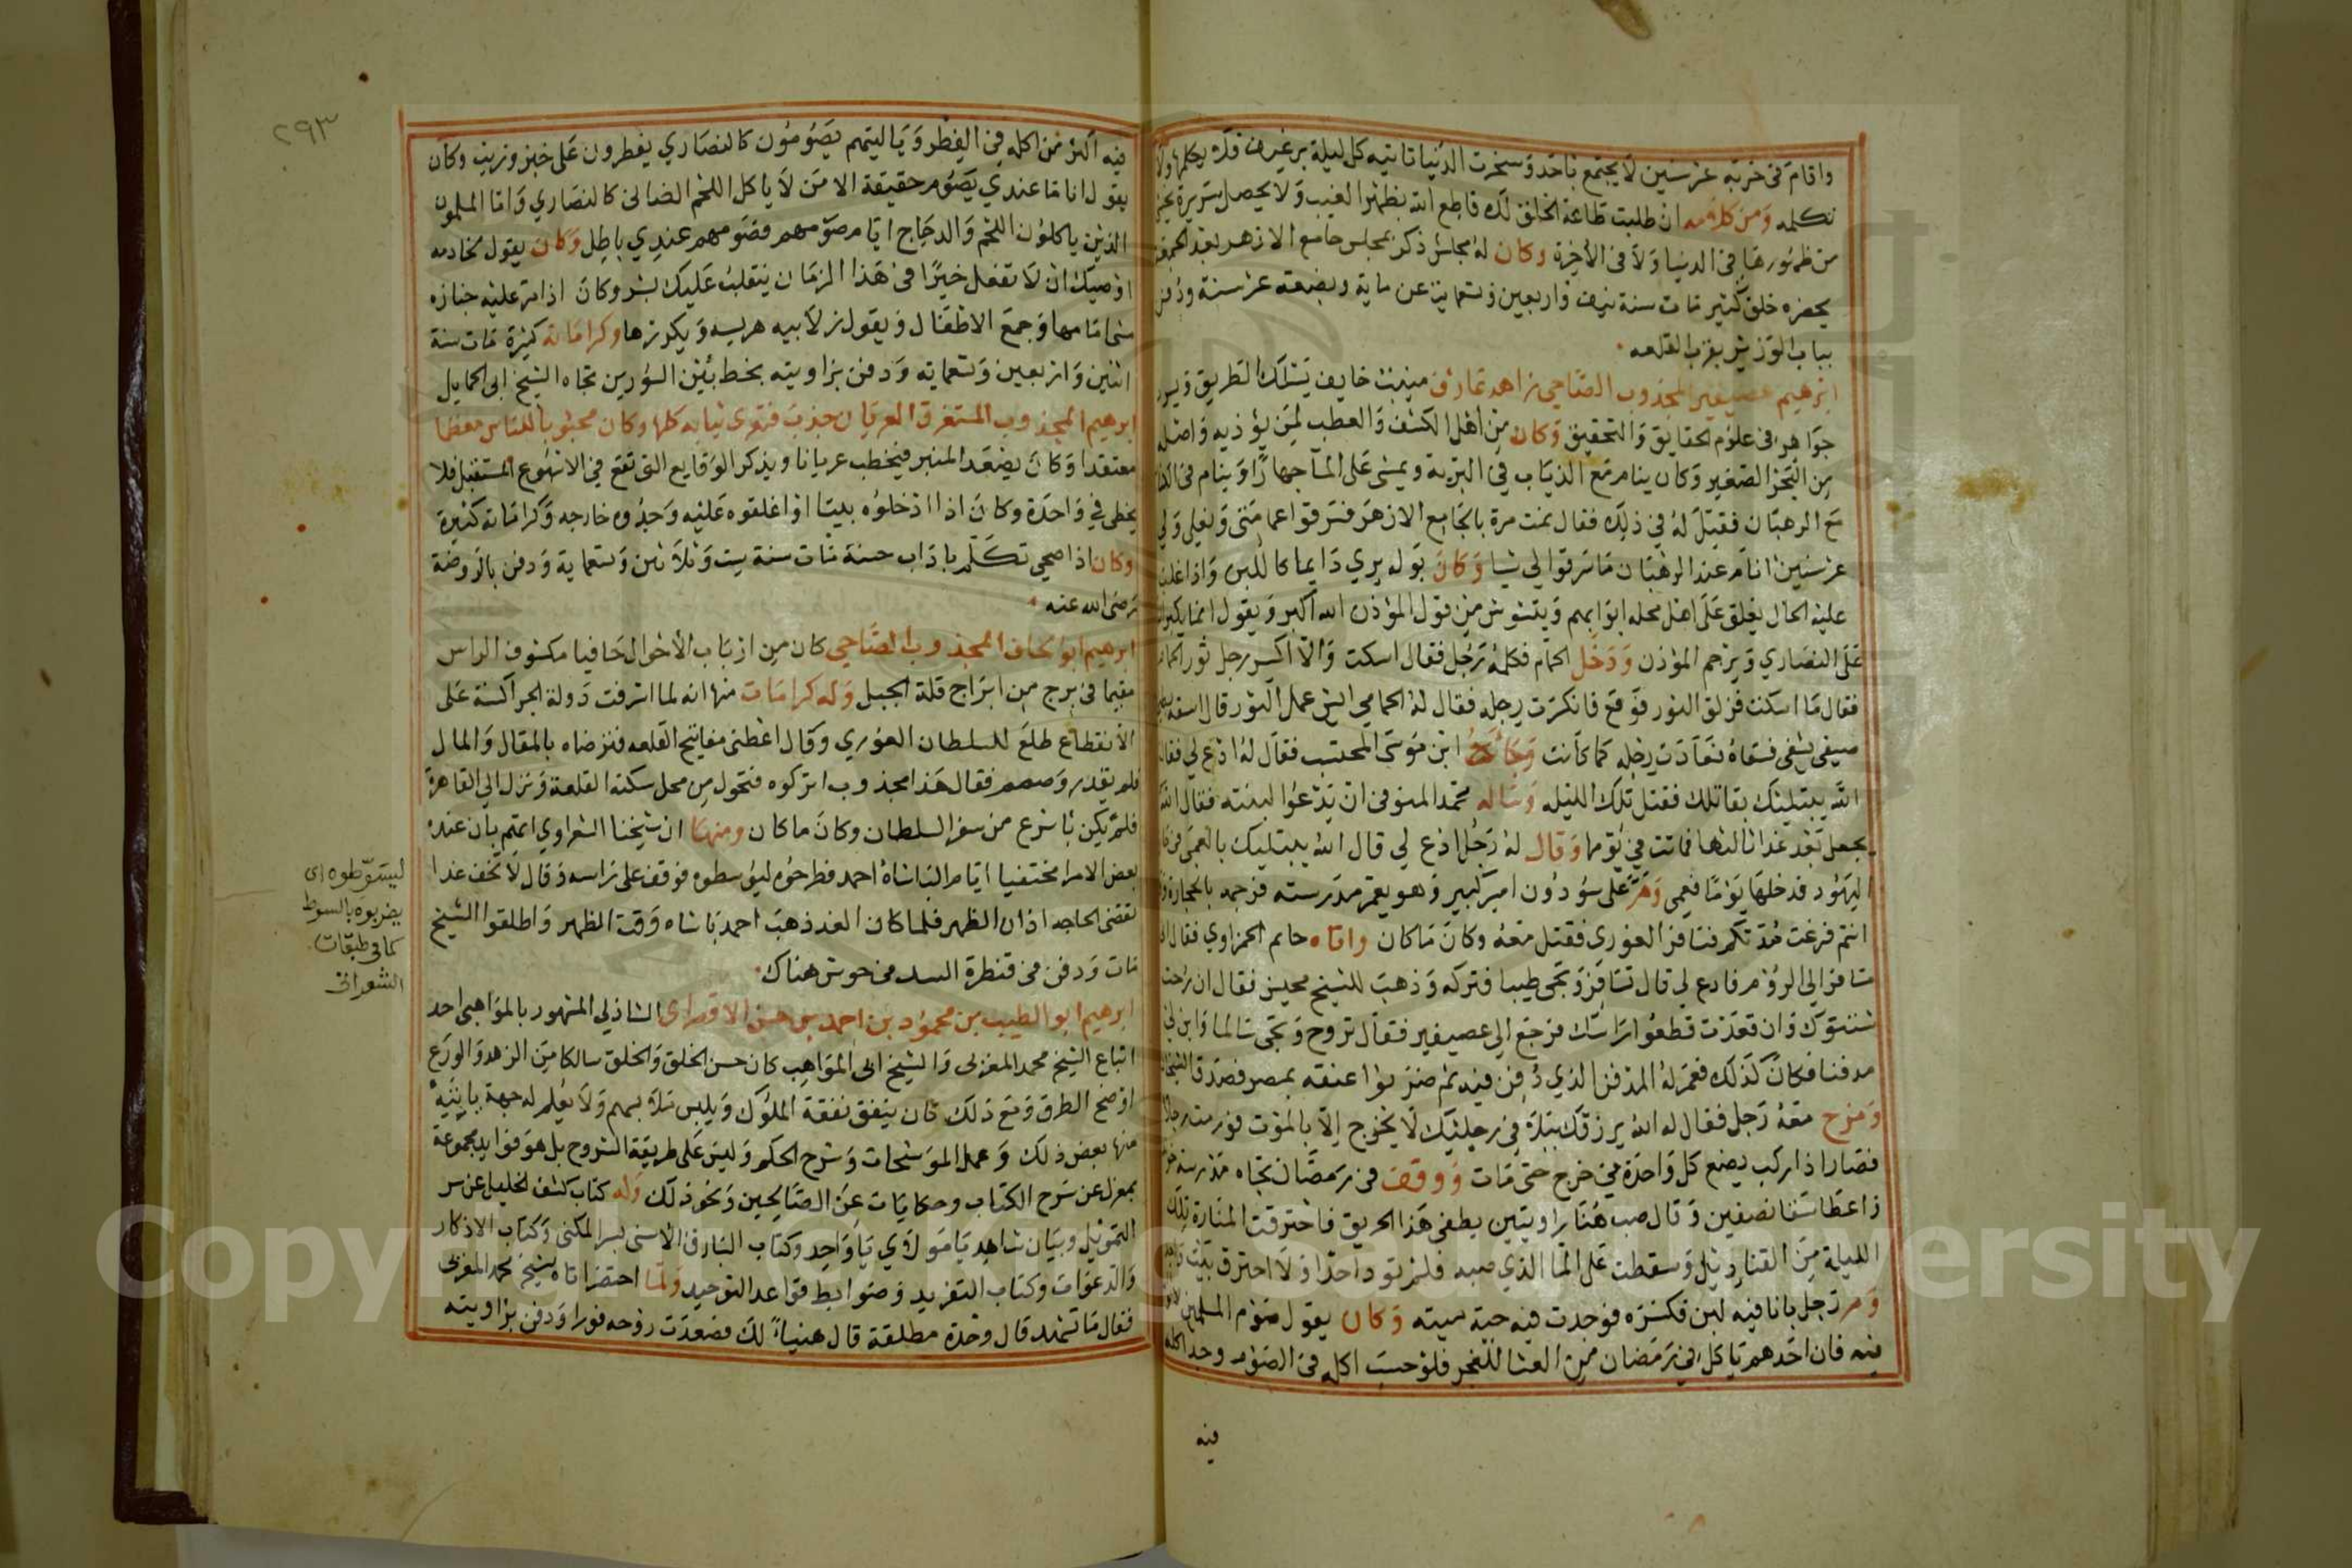 واقام في خربة عشر سنين لا يجتمع باحد وسخرت الدنيا تاتيه كل ليلة برغيف فلا يكلمها ولا
تكلمه ومن كلامه ان طلبت طاعة الخلق لك قاطع الله بظهر الغيب ولا يحصل
من ظهورها في الدنيا ولا في الاخرة وكان له مجلس ذكر بمجلس جامع الازهر بعد الجمعة
يحضره خلق كثير مات سنة نيف واربعين وتسعماية عن ماية وبضعة عشر سنة ودفن
بباب الوزير بقرب القلعه
ابرهيم عصيفير المجذوب الصاحي زاهد عارف منيب خايف يسلك الطريق
جواهر في علوم الحقايق والتحقيق وكان من اهل الكشف والعطب لمن يؤذيه واصله
من البحر الصغير وكان ينام مع الذياب في البرية ويمشي على الما جهارا وينام في
مع الرهبان فقيل له في ذلك فقال نمت مرة بالجامع الازهر فسرقوا عمامتي ونعلي ولي
عشر سنين انام عند الرهبان ما سرقوا لي شيا وكان بوله يري دايما كاللبن واذا غلب
عليه الحال يغلق على اهل محله ابوابهم ويتشوش من قول المؤذن الله اكبر ويقول انما يكبر
على النصاري ويرجم المؤذن ودخل الحمام فكلمه رجل فقال اسكت والا اكسر رجل ثور الحمام
فقال ما اسكت فزلق الثور فوقع فانكسرت رجله فقال له الحمامي ايش عمل الثور قال اسقه
يشفي فسقاه فعادت رجله كما كانت ابن موسى المحتسب فقال له ادع لي فقال
الله يبتليك بقاتلك فقتل تلك الليله وساله محمد المنوفي ان يدعوا لبنته فقال الله
يجعل بعد غد ثالثها فماتت في يومها وقال له رجل ادع لي قال الله يبتليك بالعمى في
اليهود فدخلها يوما فعمي ومر على سودون امير كبير وهو يعمر مدرسته فرجمه بالحجارة
انتم فرغت مدتكم فسافر الغوري فقتل معه وكان ما كان واتاه جانم الحمزاوي فقال
مسافر الى الروم فادع لي قال تسافر وتجي طيبا فتركه وذهب للشيخ محيسن فقال ان رحت
شنقوك وان قعدت قطعوا راسك فرجع الى عصيفير فقال تروح وتجي سالما وابن لي
مدفنا فكان كذلك فعمر له المدفن الذي دفن فيه ثم ضربوا عنقه بمصر فصدق الشيخان
ومزح معه رجل فقال له الله يرزقك ببلاء في رجليك لا يخرج الا بالموت فورمت رجلاه
فصار اذا ركب يضع كل واحدة في خرج حتى مات ووقف في رمضان تجاه مدرسة
واعطا سقا نصفين وقال صب هنا راويتين يطفي هذا الحريق فاحترقت المنارة تلك
الليلة من القناديل وسقطت على الما الذي صبه فلم تؤد احدا ولا احترق بيت
ومر رجل بانا فيه لبن فكسره فوجدت فيه حية ميته وكان يقول صوم المسلمين
فيه فان احدهم ياكل في رمضان من العشا للفجر فلو حسب اكله في الصوم وحد اكله
فيه
٢٩٣
فيه اكثر من اكله في الفطر ويا ليتهم يصومون كالنصاري يفطرون على خبز وزيت وكان
يقول انا ما عندي يصوم حقيقة الا من لا ياكل اللحم الضاني كالنصاري واما المسلمون
الذين ياكلون اللحم والدجاج ايام صومهم فصومهم عندي باطل وكان يقول لخادمه
اوصيك ان لا تفعل خيرا في هذا الزمان ينقلب عليك بشر وكان اذا مر عليه جنازه
مشى امامها وجمع الاطفال ويقول زلابيه هريسه ويكررها وكراماته كثيرة مات سنة
اثنين واربعين وتسعمايه ودفن بزاويته بخط بين السورين تجاه الشيخ ابى الحمايل
ابرهيم المجذوب المستغرق العريان جذب فتعرى ثيابه كلها وكان محبوبا للناس معظما
معتقدا وكان يصعد المنبر فيخطب عريانا ويذكر الوقايع التي تقع في الاسبوع المستقبل فلا
يخطى في واحدة وكان اذا ادخلوه بيتا او اغلقوه عليه وجدوه خارجه وكراماته كثيرة
وكان اذا صحي تكلم باداب حسنة مات سنة ست وثلاثين وتسعماية ودفن بالروضة
رضى الله عنه
ابرهيم ابو لحاف المجذوب الصاحي كان من ارباب الاحوال حافيا مكشوف الراس
مقيما في برج من ابراج قلة الجبل وله كرامات منها انه لما اشرفت دولة الجراكسة على
الانقطاع طلع للسلطان الغوري وقال اعطني مفاتيح القلعه فترضاه بالمقال والمال
فلم يقدر وصمم فقال هذا مجذوب اتركوه فتحول من محل سكنه القلعة ونزل الى القاهرة
فلم يكن باسرع من سفر السلطان وكان ما كان ومنها ان شيخنا الشعراوي اتهم بان عنده
بعض الامرا مختفيا ايام الباشاه احمد فطرحوه ليوسطوه فوقف على راسه وقال لا تخف غدا
تقضى الحاجه اذان الظهر فلما كان الغد ذهب احمد باشاه وقت الظهر واطلقوا الشيخ
مات ودفن من قنطرة السد من حوش هناك
ليسوطوه اى
يضربوه بالسوط
كما في طبقات
الشعرانى
ابرهيم ابو الطيب بن محمود بن احمد بن حسن الاقصراى الشاذلي المشهور بالمواهبي احد
اتباع الشيخ محمد المغربى والشيخ ابى المواهب كان حسن الخلق والخلق سالكا من الزهد والورع
اوضح الطرق ومع ذلك كان ينفق نفقة الملوك ويلبس ملابسهم ولا يعلم له جهة ياتيه
منها بعض ذلك وعمل الموشحات وشرح الحكم وليس على طريقة الشروح بل هو فوايد مجموعة
بمعزل عن شرح الكتاب وحكايات عن الصالحين ونحو ذلك وله كتاب
التمويل وبيان شاهد يا مولاي يا واحد وكتاب البارق الاسنى لسر المكنى وكتاب الاذكار
والدعوات وكتاب التفريد وضوابط قواعد التوحيد ولما احتضر اتاه شيخ محمد المغربى
فقال ما تشهد قال وحدة مطلقة قال هنياء لك فصعدت روحه فورا ودفن بزاويته
Copyright © King Saud University